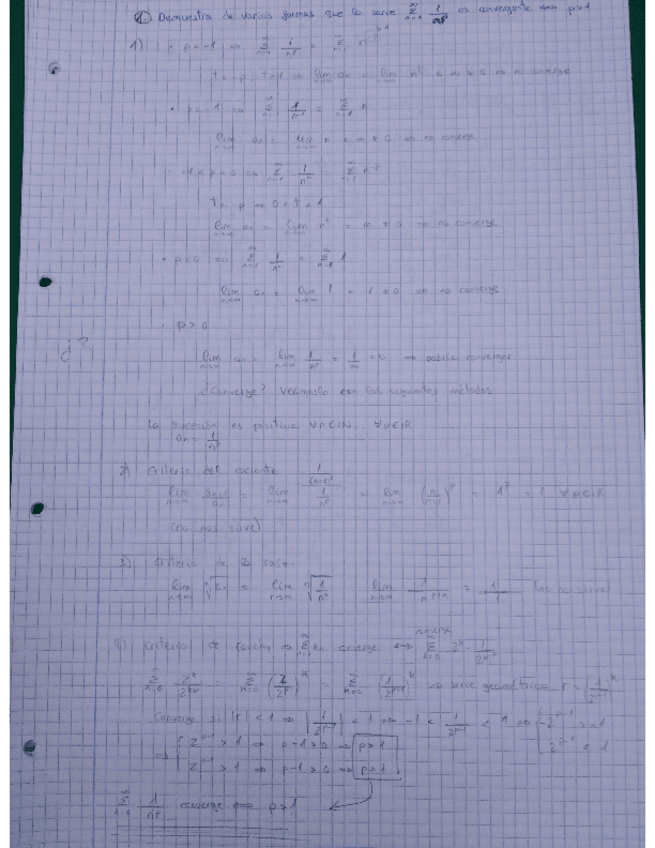 Demuestra de varias formas que la serie ∑_{n=1}^∞ 1/n^p es convergente ⟺ p>1
1) · p < -1 ⇒ ∑_{n=1}^∞ 1/n^p =
⇒ no converge
· p = -1 ⇒ ∑_{n=1}^∞ 1/n^p = ∑_{n=1}^∞ n
lim_{n→∞} an = lim_{n→∞} n = ∞ ≠ 0 ⇒ no converge
· -1 < p < 0 ⇒ ∑_{n=1}^∞ 1/n^p = ∑_{n=1}^∞ n^{-p}
t = -p ⇒ 0 < t < 1
lim_{n→∞} an = lim_{n→∞} n^t = ∞ ≠ 0 ⇒ no converge
· p = 0 ⇒ ∑_{n=1}^∞ 1/n^p = ∑_{n=1}^∞ 1
lim_{n→∞} an = lim_{n→∞} 1 = 1 ≠ 0 ⇒ no converge
· p > 0
¿?
lim_{n→∞} an = lim_{n→∞} 1/n^p = 1/∞ = 0 ⇒ podría converger
¿Converge? Veámoslo con los siguientes métodos
La sucesión es positiva ∀n∈ℕ, ∀p∈ℝ
an = 1/n^p
2) Criterio del cociente
lim_{n→∞} a_{n+1}/an = lim_{n→∞} (1/(n+1)^p)/(1/n^p) = lim_{n→∞} (n/(n+1))^p = 1^p = 1 ∀p∈ℝ
(no nos sirve)
3) Criterio de la raíz
lim_{n→∞} ⁿ√an = lim_{n→∞} ⁿ√(1/n^p) = lim_{n→∞} 1/n^{p/n} = 1/1
4) Criterio de Cauchy ⇒ ∑ an converge ⟺ ∑_{k=0}^∞ 2^k · 1/2^{kp} converge
∑ 2^k/2^{kp} = ∑ = ∑ (1/2^{p-1})^k ⇒ serie geométrica r = (1/2^{p-1})
Converge si |r| < 1 ⇒ |1/2^{p-1}| < 1 ⇒ -1 < 1/2^{p-1} < 1 ⇒
⇒ { 2^{p-1} > 1 ⇒ p-1 > 0 ⇒ p > 1
2^{p-1} > 1 ⇒ p-1 > 0 ⇒ p > 1
∑ 1/n^p converge ⟺ p > 1